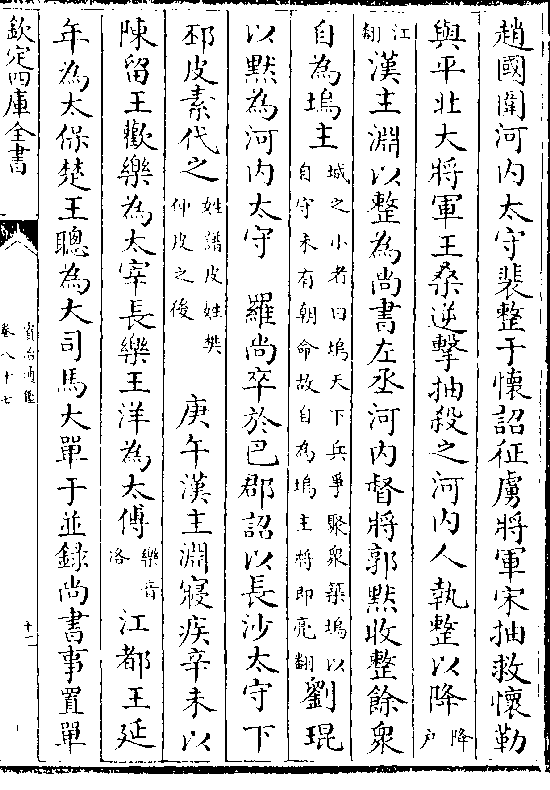 趙國圍河内太守裴整于懷詔征虜將軍宋抽救懷勒
與平北大將軍王桑逆擊抽殺之河内人執整以降降户
江翻漢主淵以整為尚書左丞河内督將郭默收整餘衆
自為塢主城之小者曰塢天下兵爭聚衆築塢以自守未有朝命故自為塢主將即亮翻劉琨
以默為河内太守　羅尚卒於巴郡詔以長沙太守下
邳皮素代之姓譜皮姓樊仲皮之後　庚午漢主淵寢疾辛未以
陳留王歡樂為太宰長樂王洋為太傅樂音洛江都王延
年為太保楚王聰為大司馬大單于並錄尚書事置單
欽定四庫全書
資治通鑑
卷八十七
十一